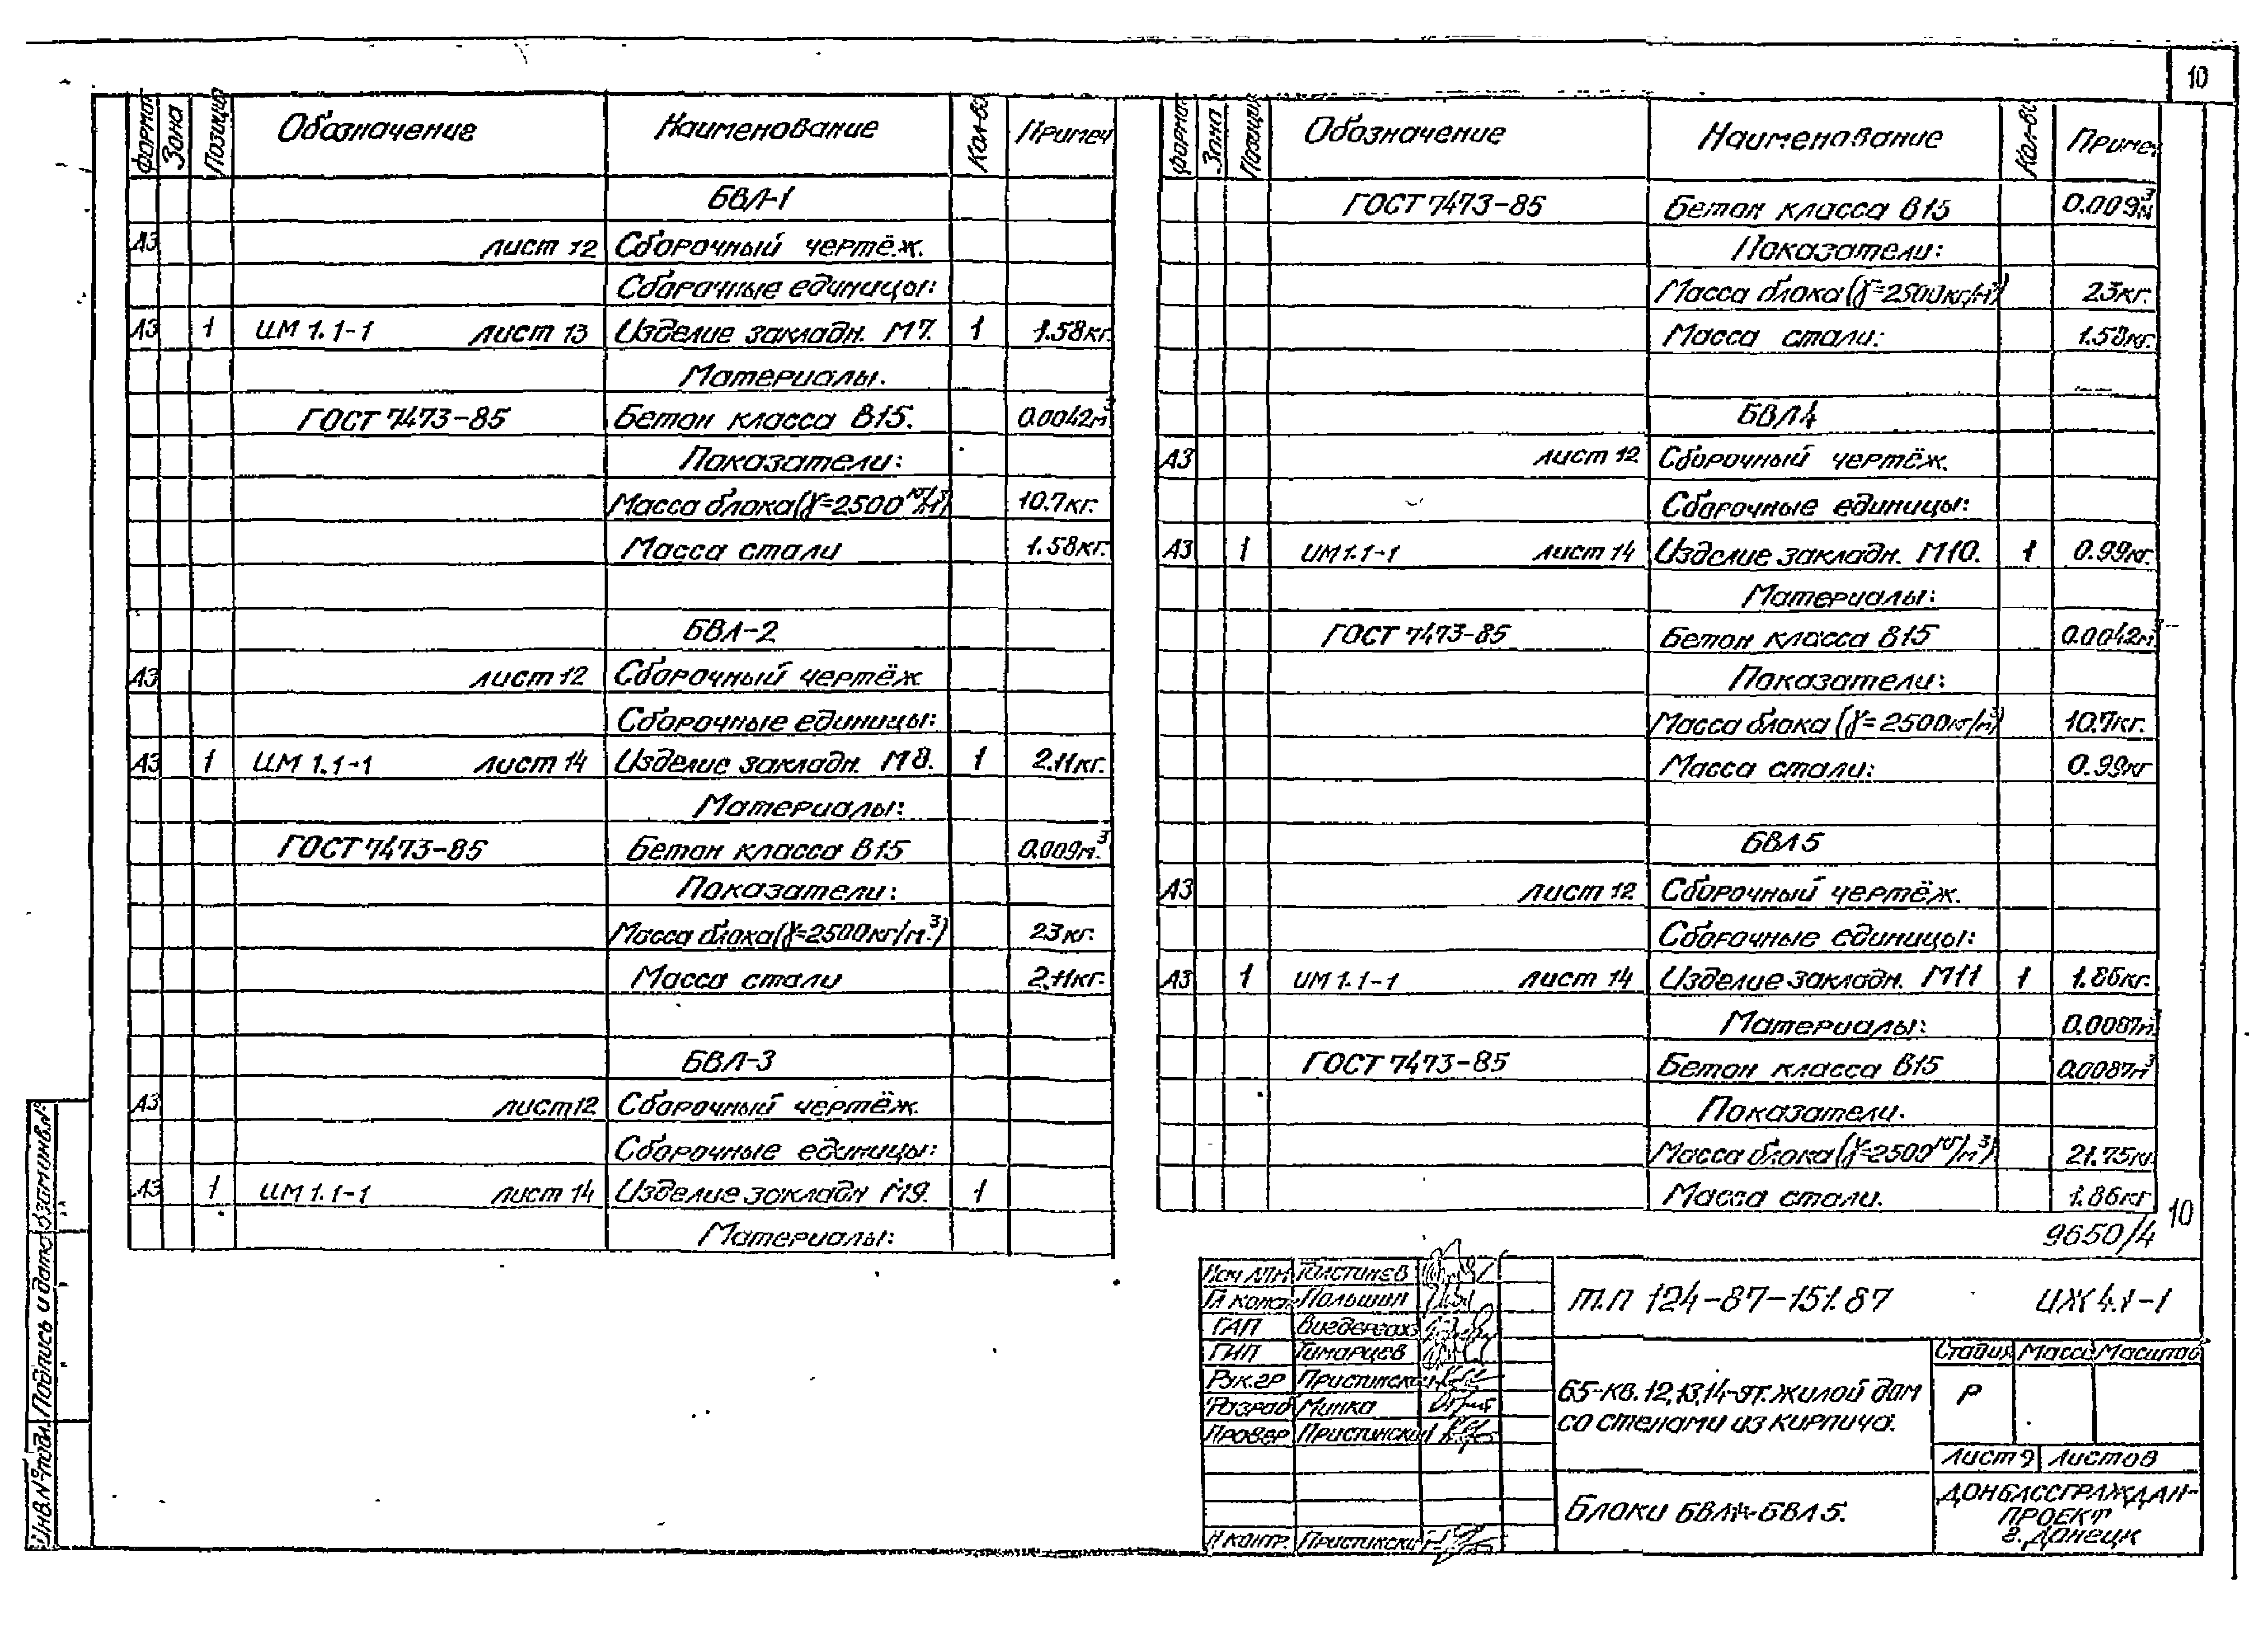 10
Формат Зона Позиция Обозначение Наименование Кол-во Примеч
БВЛ-1
А3 лист 12 Сборочный чертёж.
Сборочные единицы:
А3 1 ИМ 1.1-1 лист 13 Изделие закладн. М7. 1 1.58кг.
Материалы.
ГОСТ 7473-85 Бетон класса В15. 0.0042м³
Показатели:
Масса блока(γ=2500кг/м³) 10.7кг.
Масса стали 1.58кг.
БВЛ-2
А3 лист 12 Сборочный чертёж
Сборочные единицы:
А3 1 ИМ 1.1-1 лист 14 Изделие закладн. М8. 1 2.11кг.
Материалы:
ГОСТ 7473-85 Бетон класса В15 0.009м.³
Показатели:
Масса блока(γ=2500кг/м.³) 23кг.
Масса стали 2.11кг.
БВЛ-3
А3 лист12 Сборочный чертёж.
Сборочные единицы:
А3 1 ИМ 1.1-1 лист 14 Изделие закладн М9. 1
Материалы:
Формат Зона Позиция Обозначение Наименование Кол-во Примеч
ГОСТ 7473-85 Бетон класса В15 0.009м³
Показатели:
Масса блока(γ=2500кг/м³) 23кг.
Масса стали: 1.58кг.
БВЛ4
А3 лист 12 Сборочный чертёж.
Сборочные единицы:
А3 1 ИМ1.1-1 лист 14 Изделие закладн. М10. 1 0.99кг.
Материалы:
ГОСТ 7473-85 Бетон класса В15 0.0042м³
Показатели:
Масса блока (γ=2500кг/м³) 10.7кг.
Масса стали: 0.99кг
БВЛ5
А3 лист 12 Сборочный чертёж.
Сборочные единицы:
А3 1 ИМ 1.1-1 лист 14 Изделие закладн. М11 1 1.86кг.
Материалы: 0.0087м³
ГОСТ 7473-85 Бетон класса В15 0.0087м³
Показатели.
Масса блока(γ=2500кг/м³) 21.75кг.
Масса стали. 1.86кг
10
9650/4
Инв.№подл. Подпись и дата Взам инв.№
Толстичев
Гл конс Польшин
ГАП
ГИП Тимарцев
Рук.гр Пристинская
Разраб Минка
Провер Пристинская
Н контр. Пристинская
т.п 124-87-151.87 ИЖ 4.1-1
65-кв.12,13,14-эт.жилой дом
со стенами из кирпича.
Стадия Масса Масштаб
Р
Лист 9 Листов
Блоки БВЛ1÷БВЛ5.
ДОНБАССГРАЖДАН-
ПРОЕКТ
г.Донецк